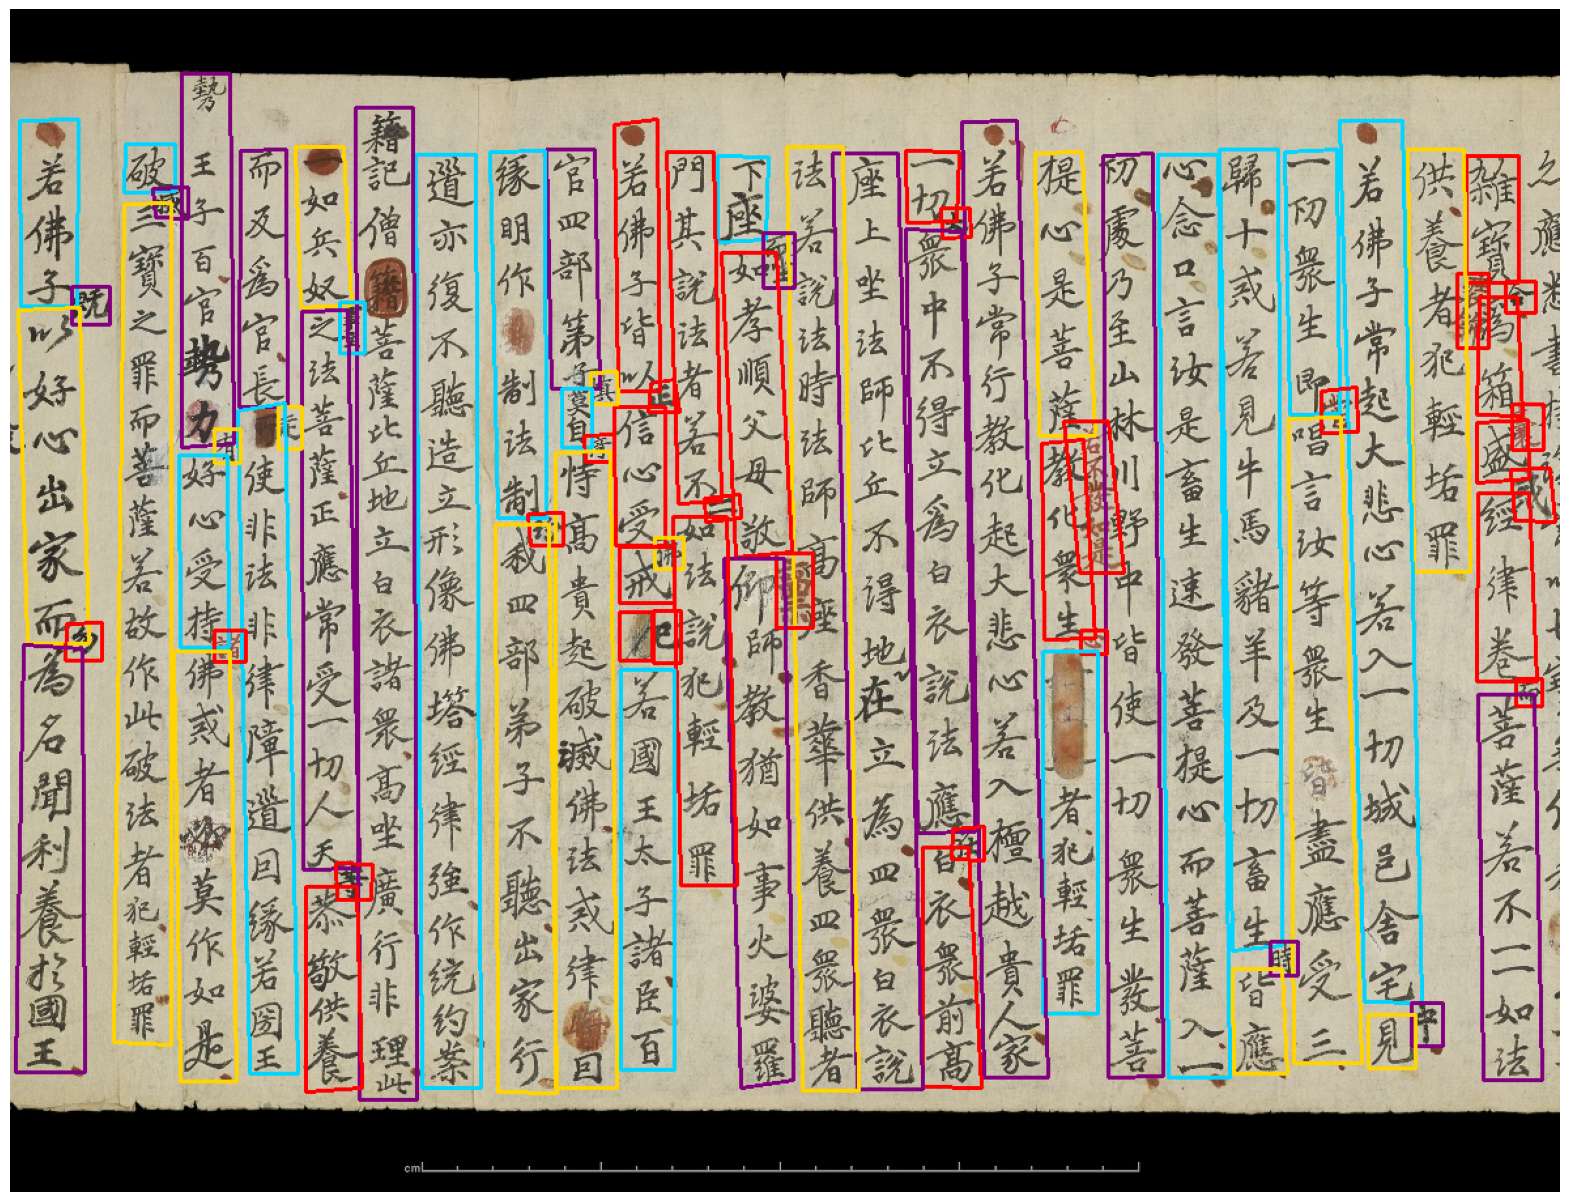 雜寶為箱盛經律卷菩薩若不一如法
供養者犯輕垢罪
若佛子常起大悲心若入一切城邑舍宅中見
一切眾生即當唱言汝等眾生盡應受三
歸十戒若見牛馬豬羊及一切畜生時皆應
心念口言汝是畜生速發菩提心而菩薩入一
切處乃至山林川野中皆使一切眾生發菩
提心是菩薩若不教化眾生心者犯輕垢罪
若佛子常行教化起大悲心若入檀越貴人家
一切眾中不得立為白衣說法應在白衣眾前高
座上坐法師比丘不得地立為四眾白衣說
法若說法時法師高座香華供養四眾聽者
下座如孝順父母敬仰師教猶如事火婆羅
門其說法者若不一如法說犯輕垢罪
若佛子皆以正信心受佛戒已若國王太子諸臣百
官四部弟子莫自恃高貴起破滅佛法戒律回
緣明作制法制我四部弟子不聽出家行
道亦復不聽造立形像佛塔經律強作統約藁
籍記僧籍菩薩比丘地立白衣諸眾高坐廣行非理此
一如兵奴之法菩薩正應常受一切人天恭敬供養
而反為官長走使非法非律障道因緣若國王
王子百官勢力有好心受持諸佛戒者莫作如是
破國三寶之罪而菩薩若故作此破法者犯輕垢罪
若佛子既以好心出家而為名聞利養於國王